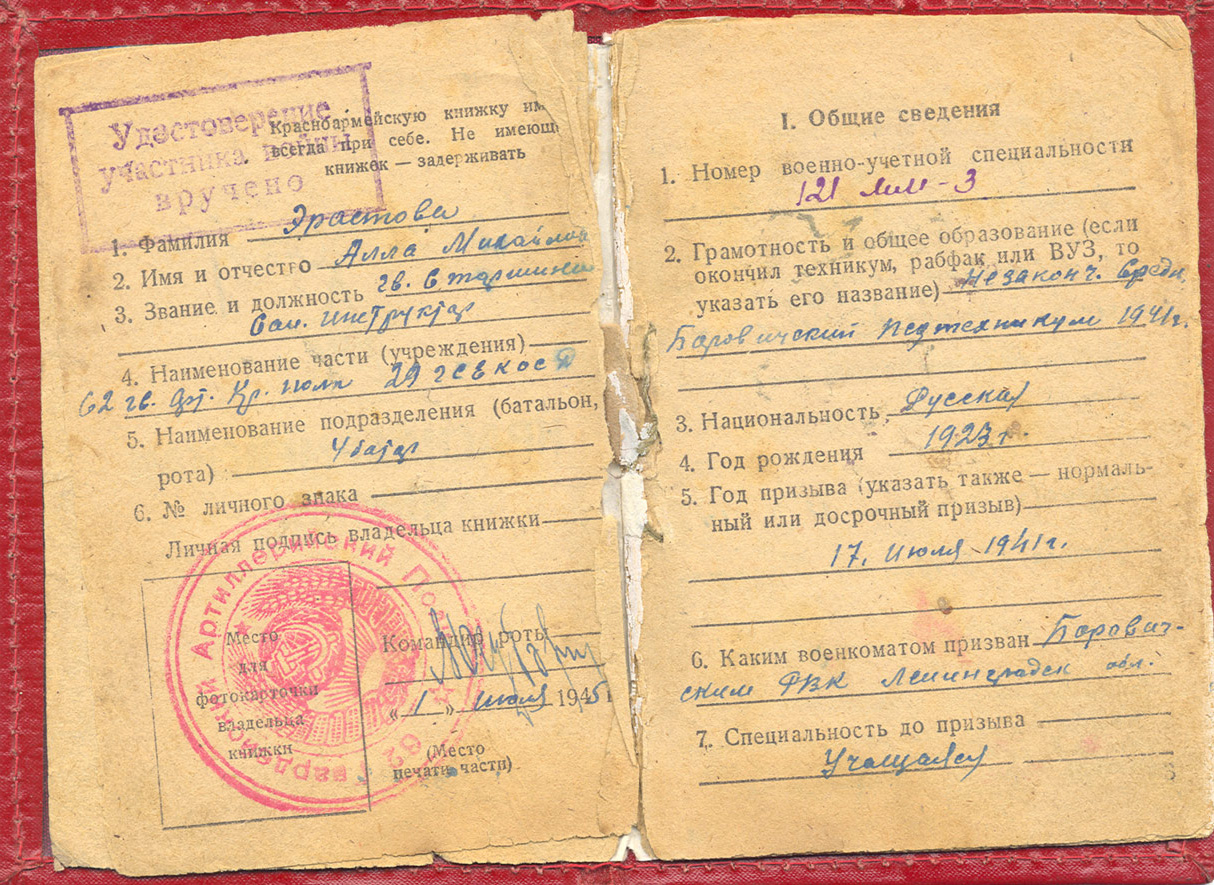 Удостоверение
участника войны
вручено
Красноармейскую книжку им
всегда при себе. Не имеющ
книжек — задерживать
1. Фамилия Эрастова
2. Имя и отчество Алла Михайлов
3. Звание и должность гв. Старшина
Сан. инструктор
4. Наименование части (учреждения)
62 гв. Арт. Кр. полк 29 гв
5. Наименование подразделения (батальон,
рота) 4 батар
6. № личного знака
Личная подпись владельца книжки
Гвардейский Артиллерийский Полк 62
Место
для
фотокарточки
владельца
книжки
Командир роты
« 1 » июля 1945г
(Место
печати части)
I. Общие сведения
1. Номер военно-учетной специальности
121 - 3
2. Грамотность и общее образование (если
окончил техникум, рабфак или ВУЗ, то
указать его название) Незаконч. Средн.
Боровичский педтехникум 1941г.
3. Национальность Русская
4. Год рождения 1923 г.
5. Год призыва (указать также — нормаль-
ный или досрочный призыв)
17. Июля 1941г.
6. Каким военкоматом призван Борович-
ским РВК Ленинградск обл.
7. Специальность до призыва
Учащаяся